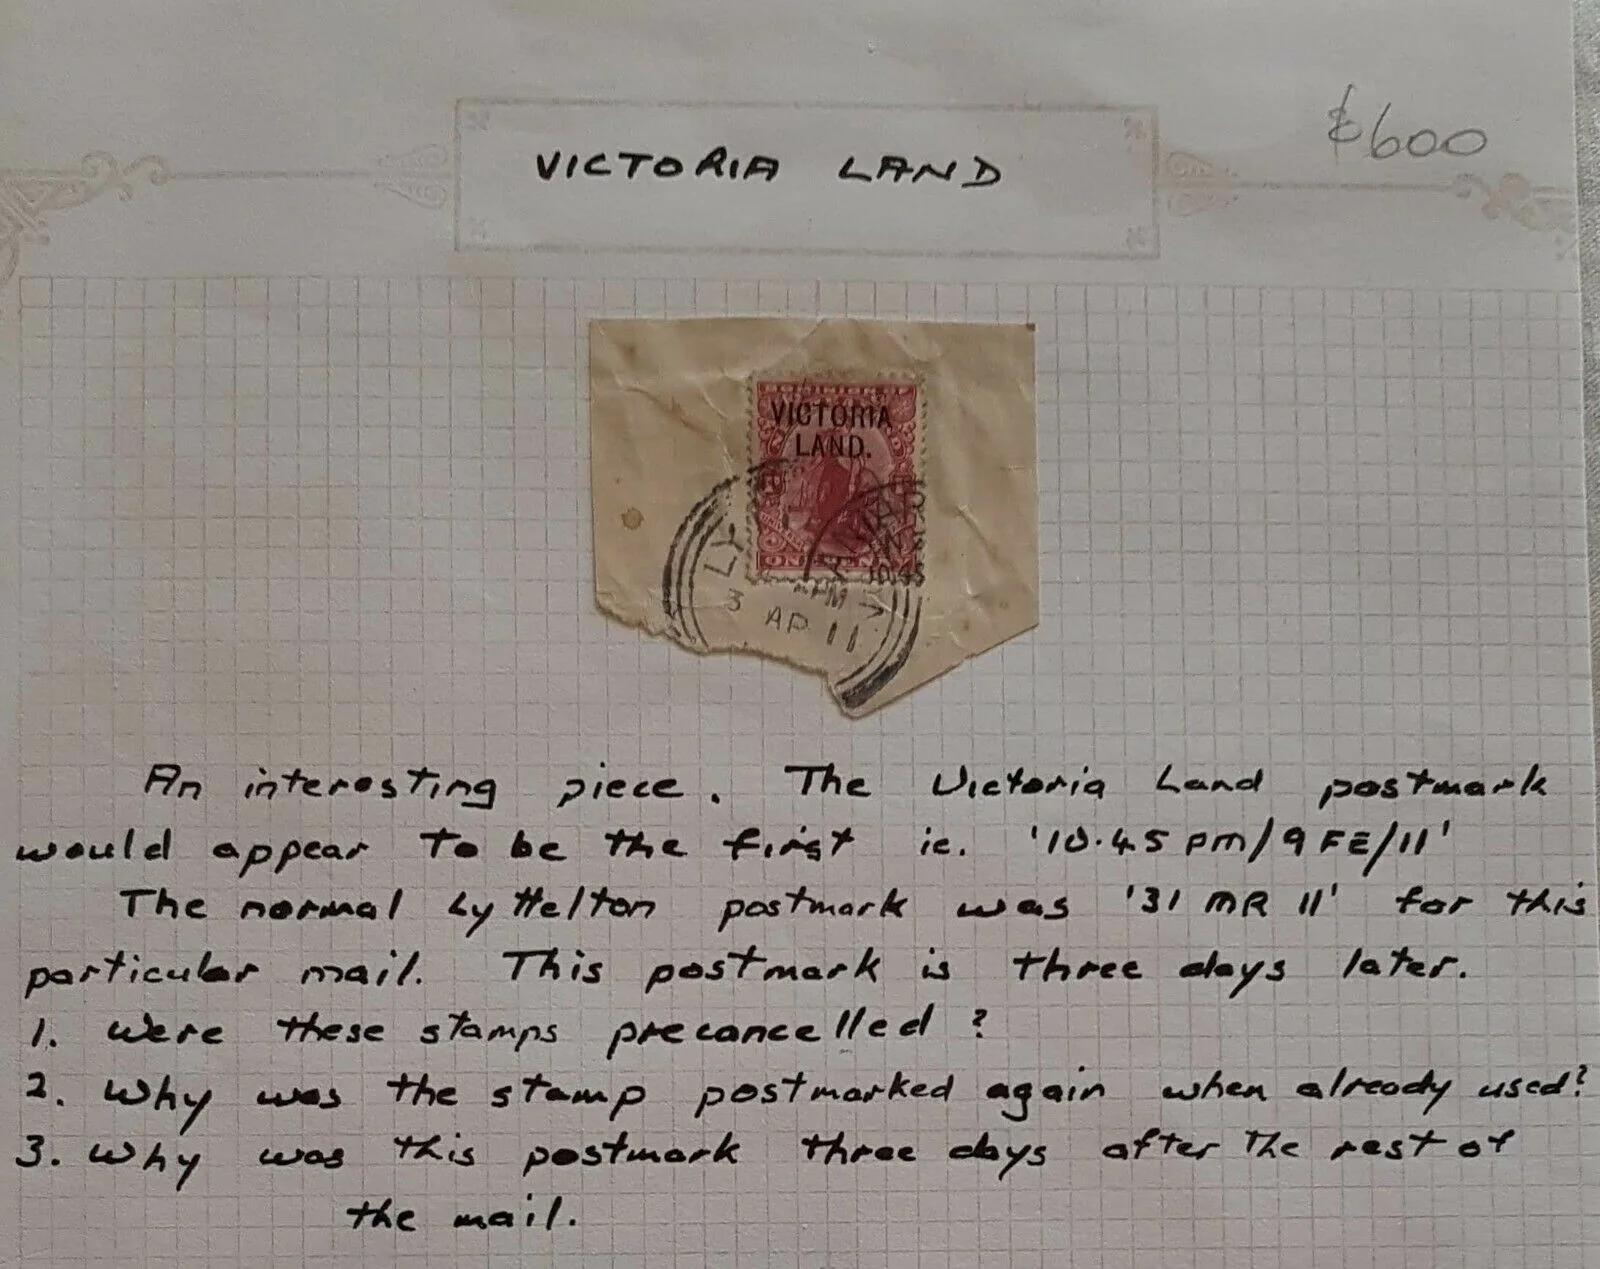 $600
VICTORIA LAND
DOMINION OF
VICTORIA
LAND.
LY
PM
3 AP 11
An interesting piece. The Victoria Land postmark
would appear to be the first ie. '10.45 pm/9 FE/11'
The normal Lyttelton postmark was '31 MR 11' for this
particular mail. This postmark is three days later.
1. Were these stamps precancelled?
2. Why was the stamp postmarked again when already used?
3. Why was this postmark three days after the rest of
the mail.